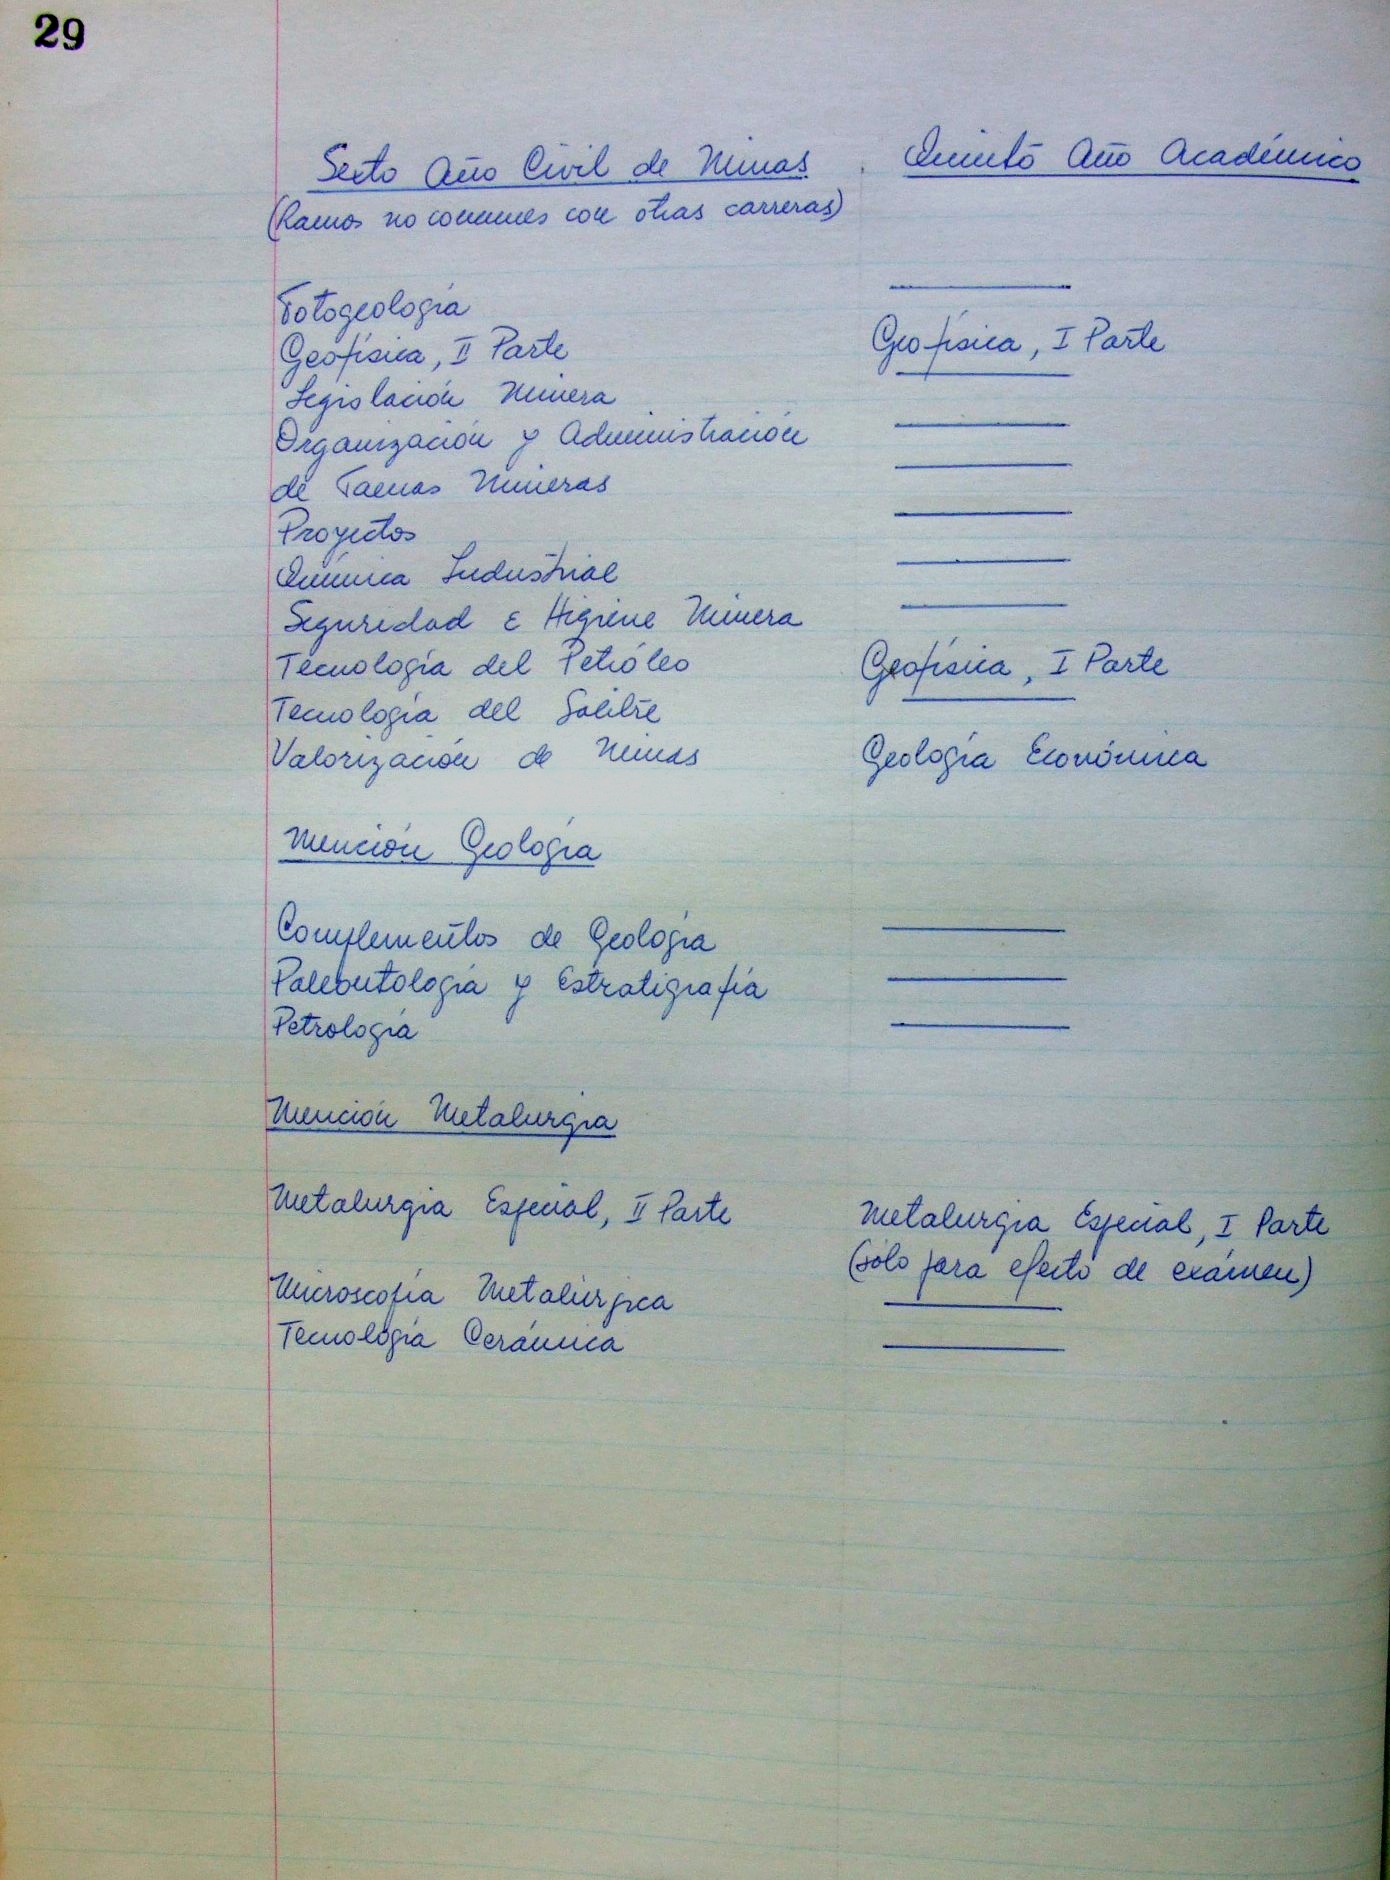 29
Sexto Año Civil de Minas Quinto Año Académico
(Ramos no comunes con otras carreras)
Fotogeología
Geofísica, II Parte Geofísica, I Parte
Legislación Minera
Organización y Administración
de Faenas Mineras
Proyectos
Química Industrial
Seguridad e Higiene Minera
Tecnología del Petróleo Geofísica, I Parte
Tecnología del Salitre
Valorización de Minas Geología Económica
Mención Geología
Complementos de Geología
Paleontología y Estratigrafía
Petrología
Mención Metalurgia
Metalurgia Especial, II Parte Metalurgia Especial, I Parte
(sólo para efecto de exámen)
Microscopía Metalúrgica
Tecnología Cerámica